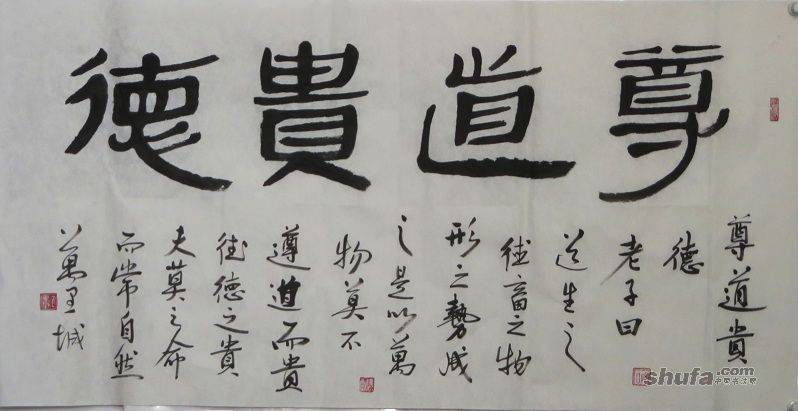 尊道貴德
尊道貴
德
老子曰
道生之
德畜之物
形之勢成
之是以萬
物莫不
遵道而貴
德德之貴
夫莫之命
而常自然
萬里城
shufa.com
中国书法网